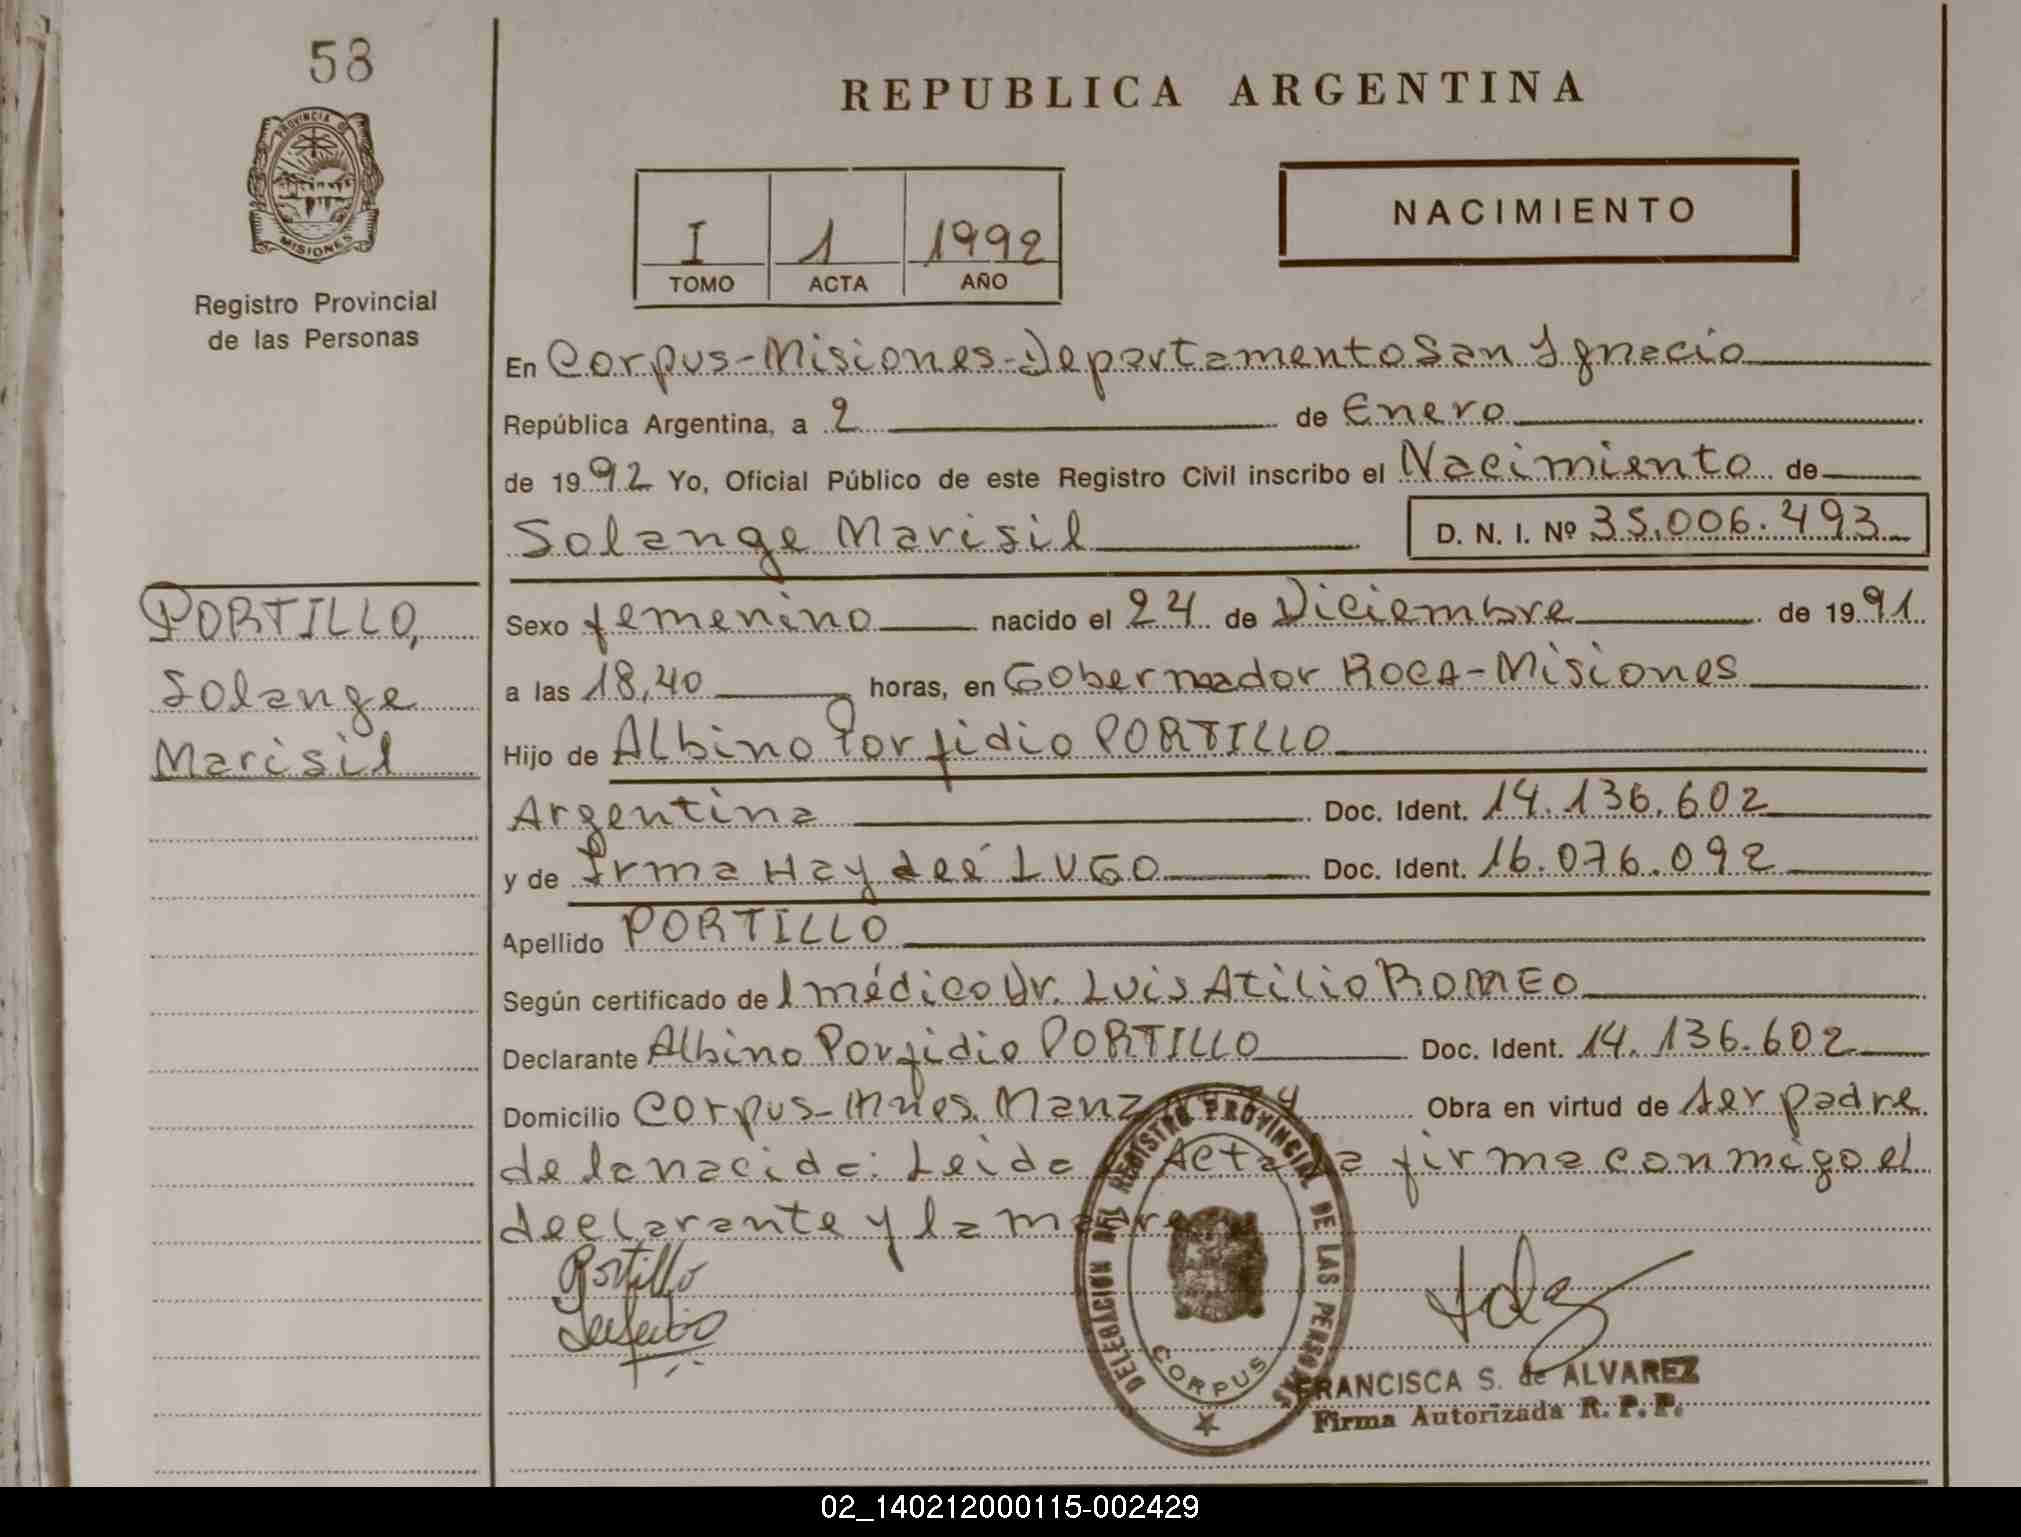 58
PROVINCIA DE
MISIONES
Registro Provincial
de las Personas
REPUBLICA ARGENTINA
I 1 1992
TOMO ACTA AÑO
NACIMIENTO
En Corpus-Misiones-Departamento San Ignacio
República Argentina, a 2 de Enero
de 1992 Yo, Oficial Público de este Registro Civil inscribo el Nacimiento de
Solange Marisil D. N. I. Nº 35.006.493
PORTILLO,
Solange
Marisil
Sexo femenino nacido el 24 de Diciembre de 1991
a las 18,40 horas, en Gobernador ROCA-Misiones
Hijo de Albino Porfidio PORTILLO
Argentina Doc. Ident. 14.136.602
y de Irma Haydeé LUGO Doc. Ident. 16.076.092
Apellido PORTILLO
Según certificado del médico Dr. Luis Atilio ROMEO
Declarante Albino Porfidio PORTILLO Doc. Ident. 14.136.602
Domicilio Corpus-Mnes. Manz Obra en virtud de ser padre
de la nacida: Leida Acta la firma conmigo el
declarante y la madre
Portillo
DELEGACION DEL REGISTRO PROVINCIAL DE LAS PERSONAS
CORPUS
FRANCISCA S. de ALVAREZ
Firma Autorizada R. P. P.
02_140212000115-002429